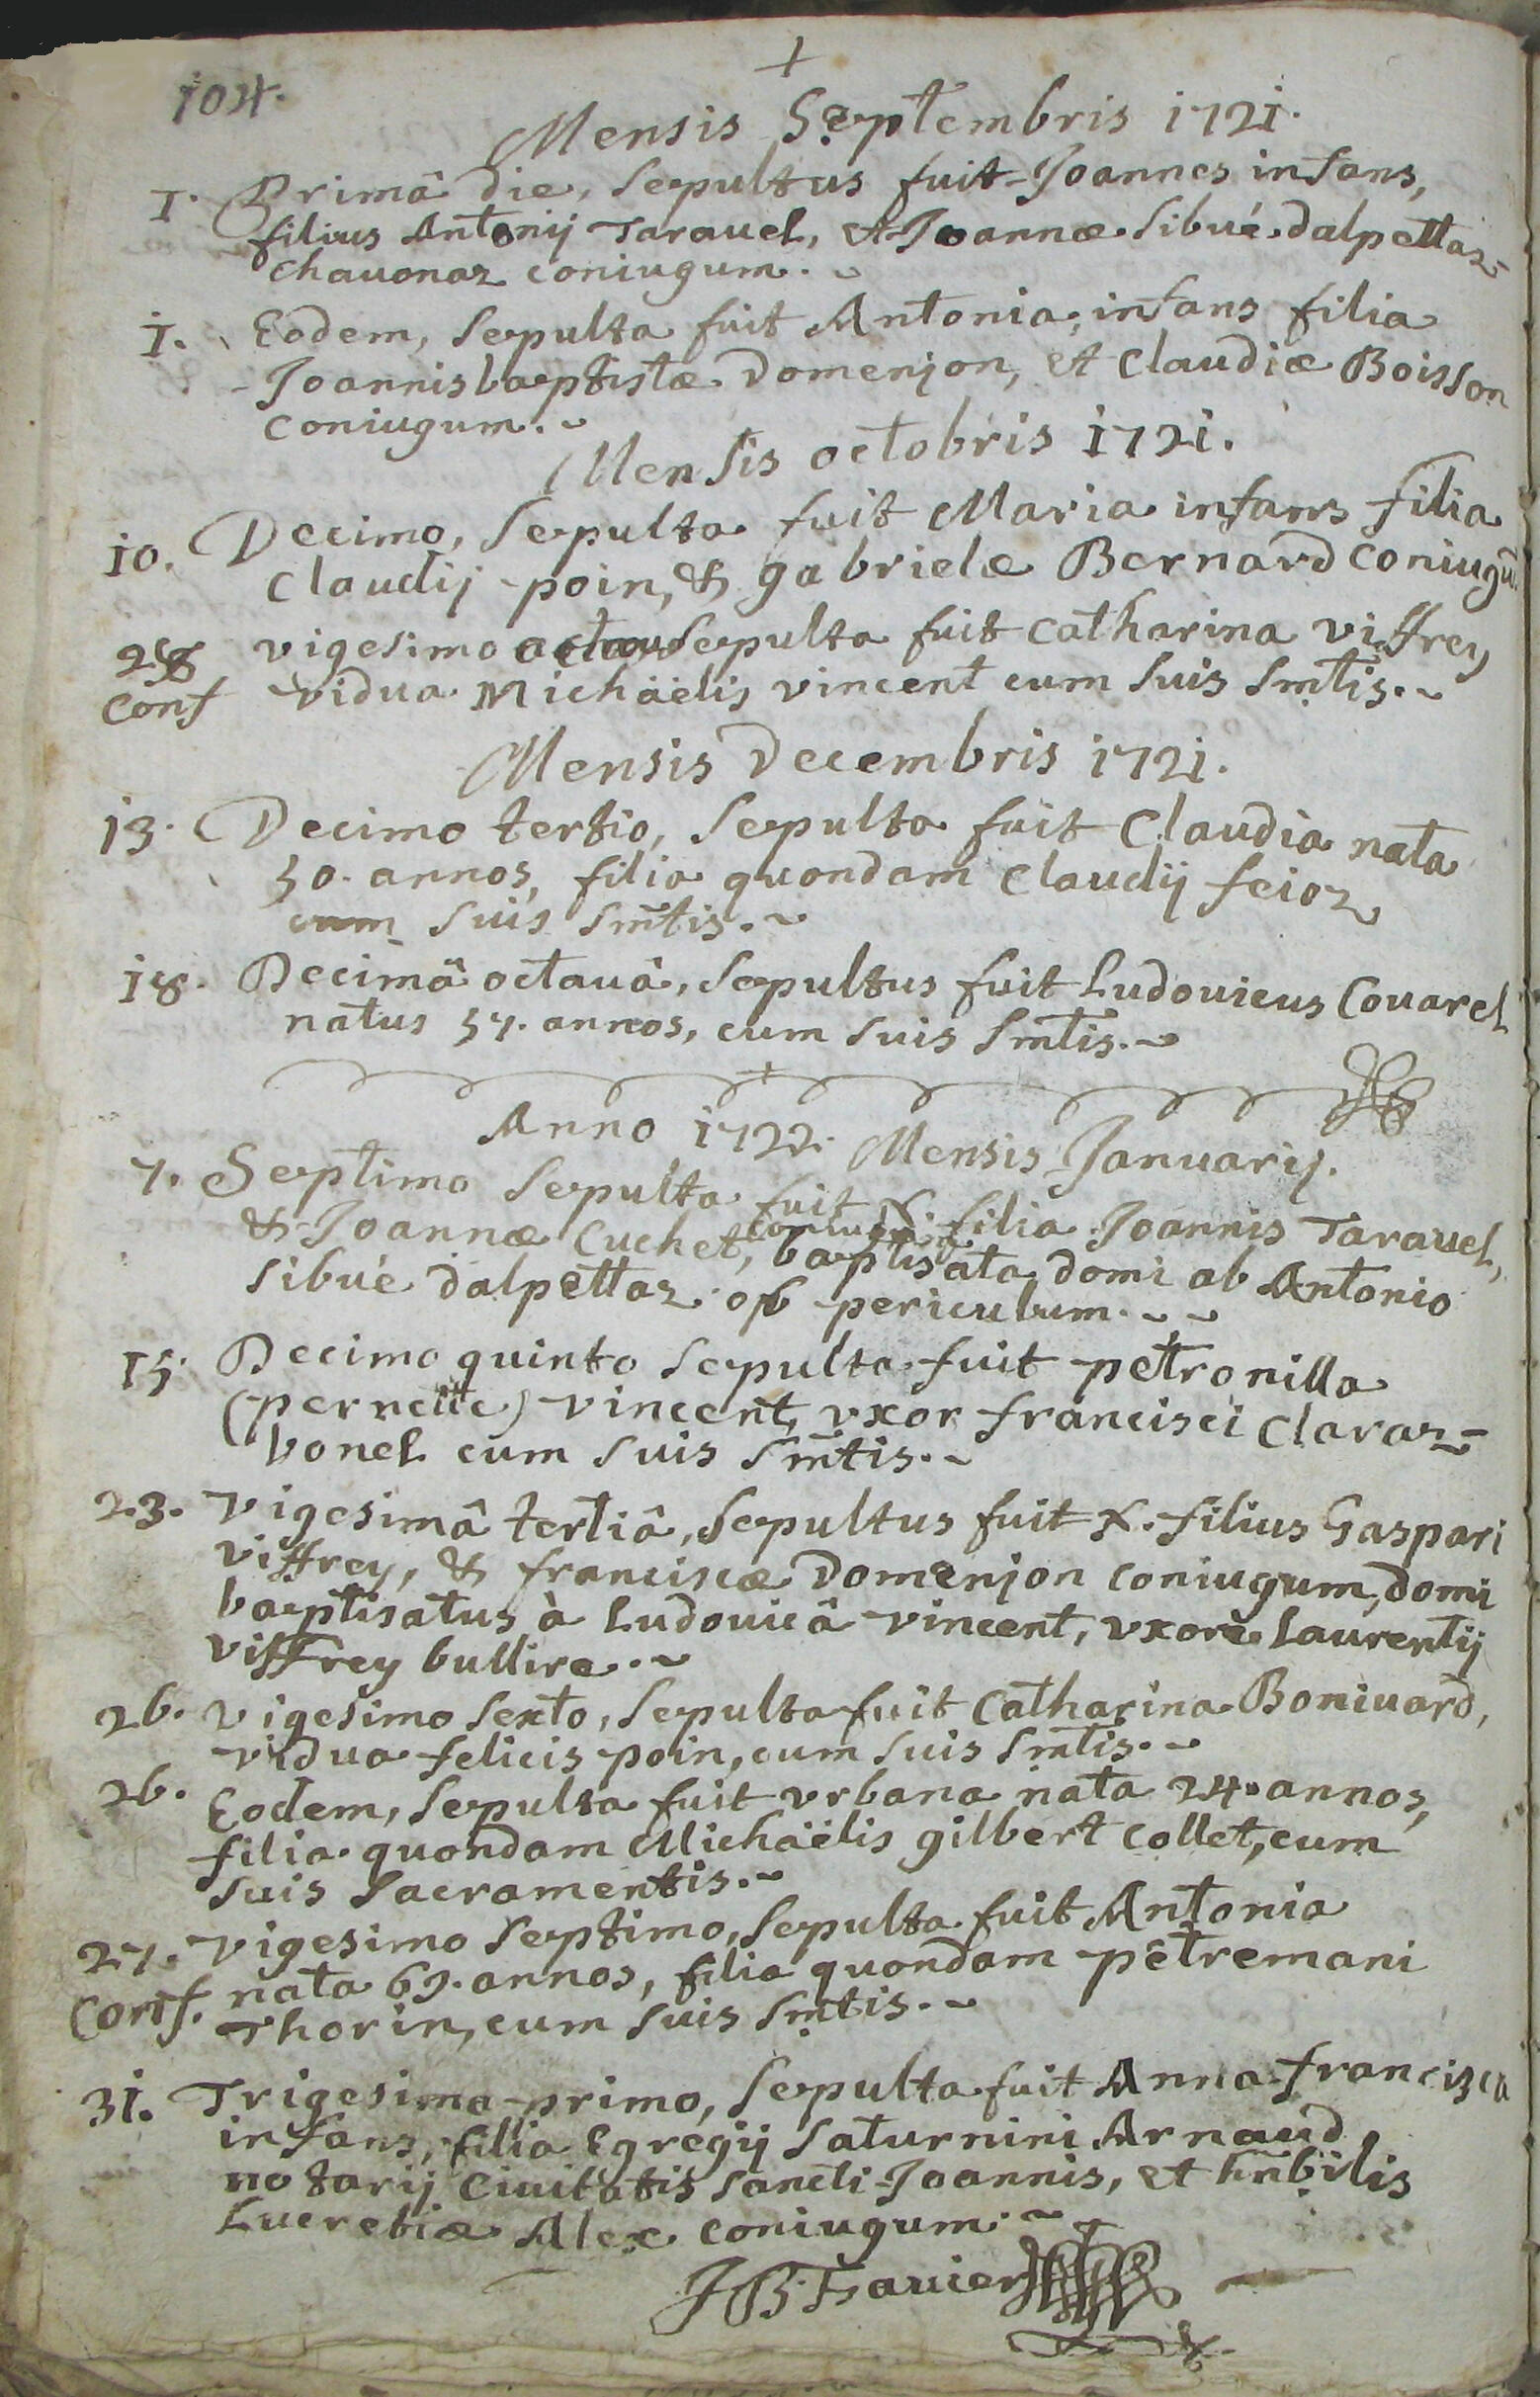 +
104.
Mensis Septembris 1721.
1. Primâ die, sepultus fuit Joannes infans,
filius Antonij Tarauel, et Joannæ Sibué dalpettaz-
chauonaz coniugum.
1. Eodem, sepulta fuit Antonia, infans filia
Joannisbaptistæ Domenjon, et Claudiæ Boisson
coniugum.
Mensis octobris 1721.
10. Decimo, sepulta fuit Maria infans filia
Claudij poin, & gabrielæ Bernard coniugū.
28 vigesimo octauo sepulta fuit catharina viffrey
Conf vidua Michaëlis vincent cum suis sm̃tis.
Mensis Decembris 1721.
13. Decimo tertio, sepulta fuit Claudia nata
50. annos, filia quondam Claudij feioz
cum suis sm̃tis.
18. Decimâ octauâ, sepultus fuit Ludouicus Couarel
natus 57. annos, cum suis sm̃tis.
Anno 1722. Mensis Januarij.
7. Septimo sepulta fuit N. filia Joannis Tarauel,
& Joannæ Cuchet, coniugum baptisata domi ab Antonio
Sibué dalpettaz ob periculum.
15 Decimo quinto sepulta fuit petronilla
(pernette) vincent, vxor francisci Claraz-
bonel cum suis sm̃tis.
23. Vigesimâ tertiâ, sepultus fuit N. filius Gaspari
viffrey, & franciscæ Domenjon coniugum, domi
baptisatus à Ludouicâ vincent, vxore Laurentij
viffrey bullire.
26. vigesimo sexto, sepulta fuit Catharina Boniuard,
vidua felicis poin, cum suis sm̃tis.
26. Eodem, sepulta fuit vrbana nata 24. annos,
filia quondam Michaëlis gilbert collet, cum
suis sacramentis.
27. vigesimo septimo, sepulta fuit Antonia
Conf. nata 69. annos, filia quondam petremani
Thorin, cum suis sm̃tis.
31. Trigesimo-primo, sepulta fuit Anna-francisca
infans, filia Egregij saturnini Arnaud
notarij Ciuitatis sancti-Joannis, et hn̄bilis
Lucretiæ Alex coniugum.